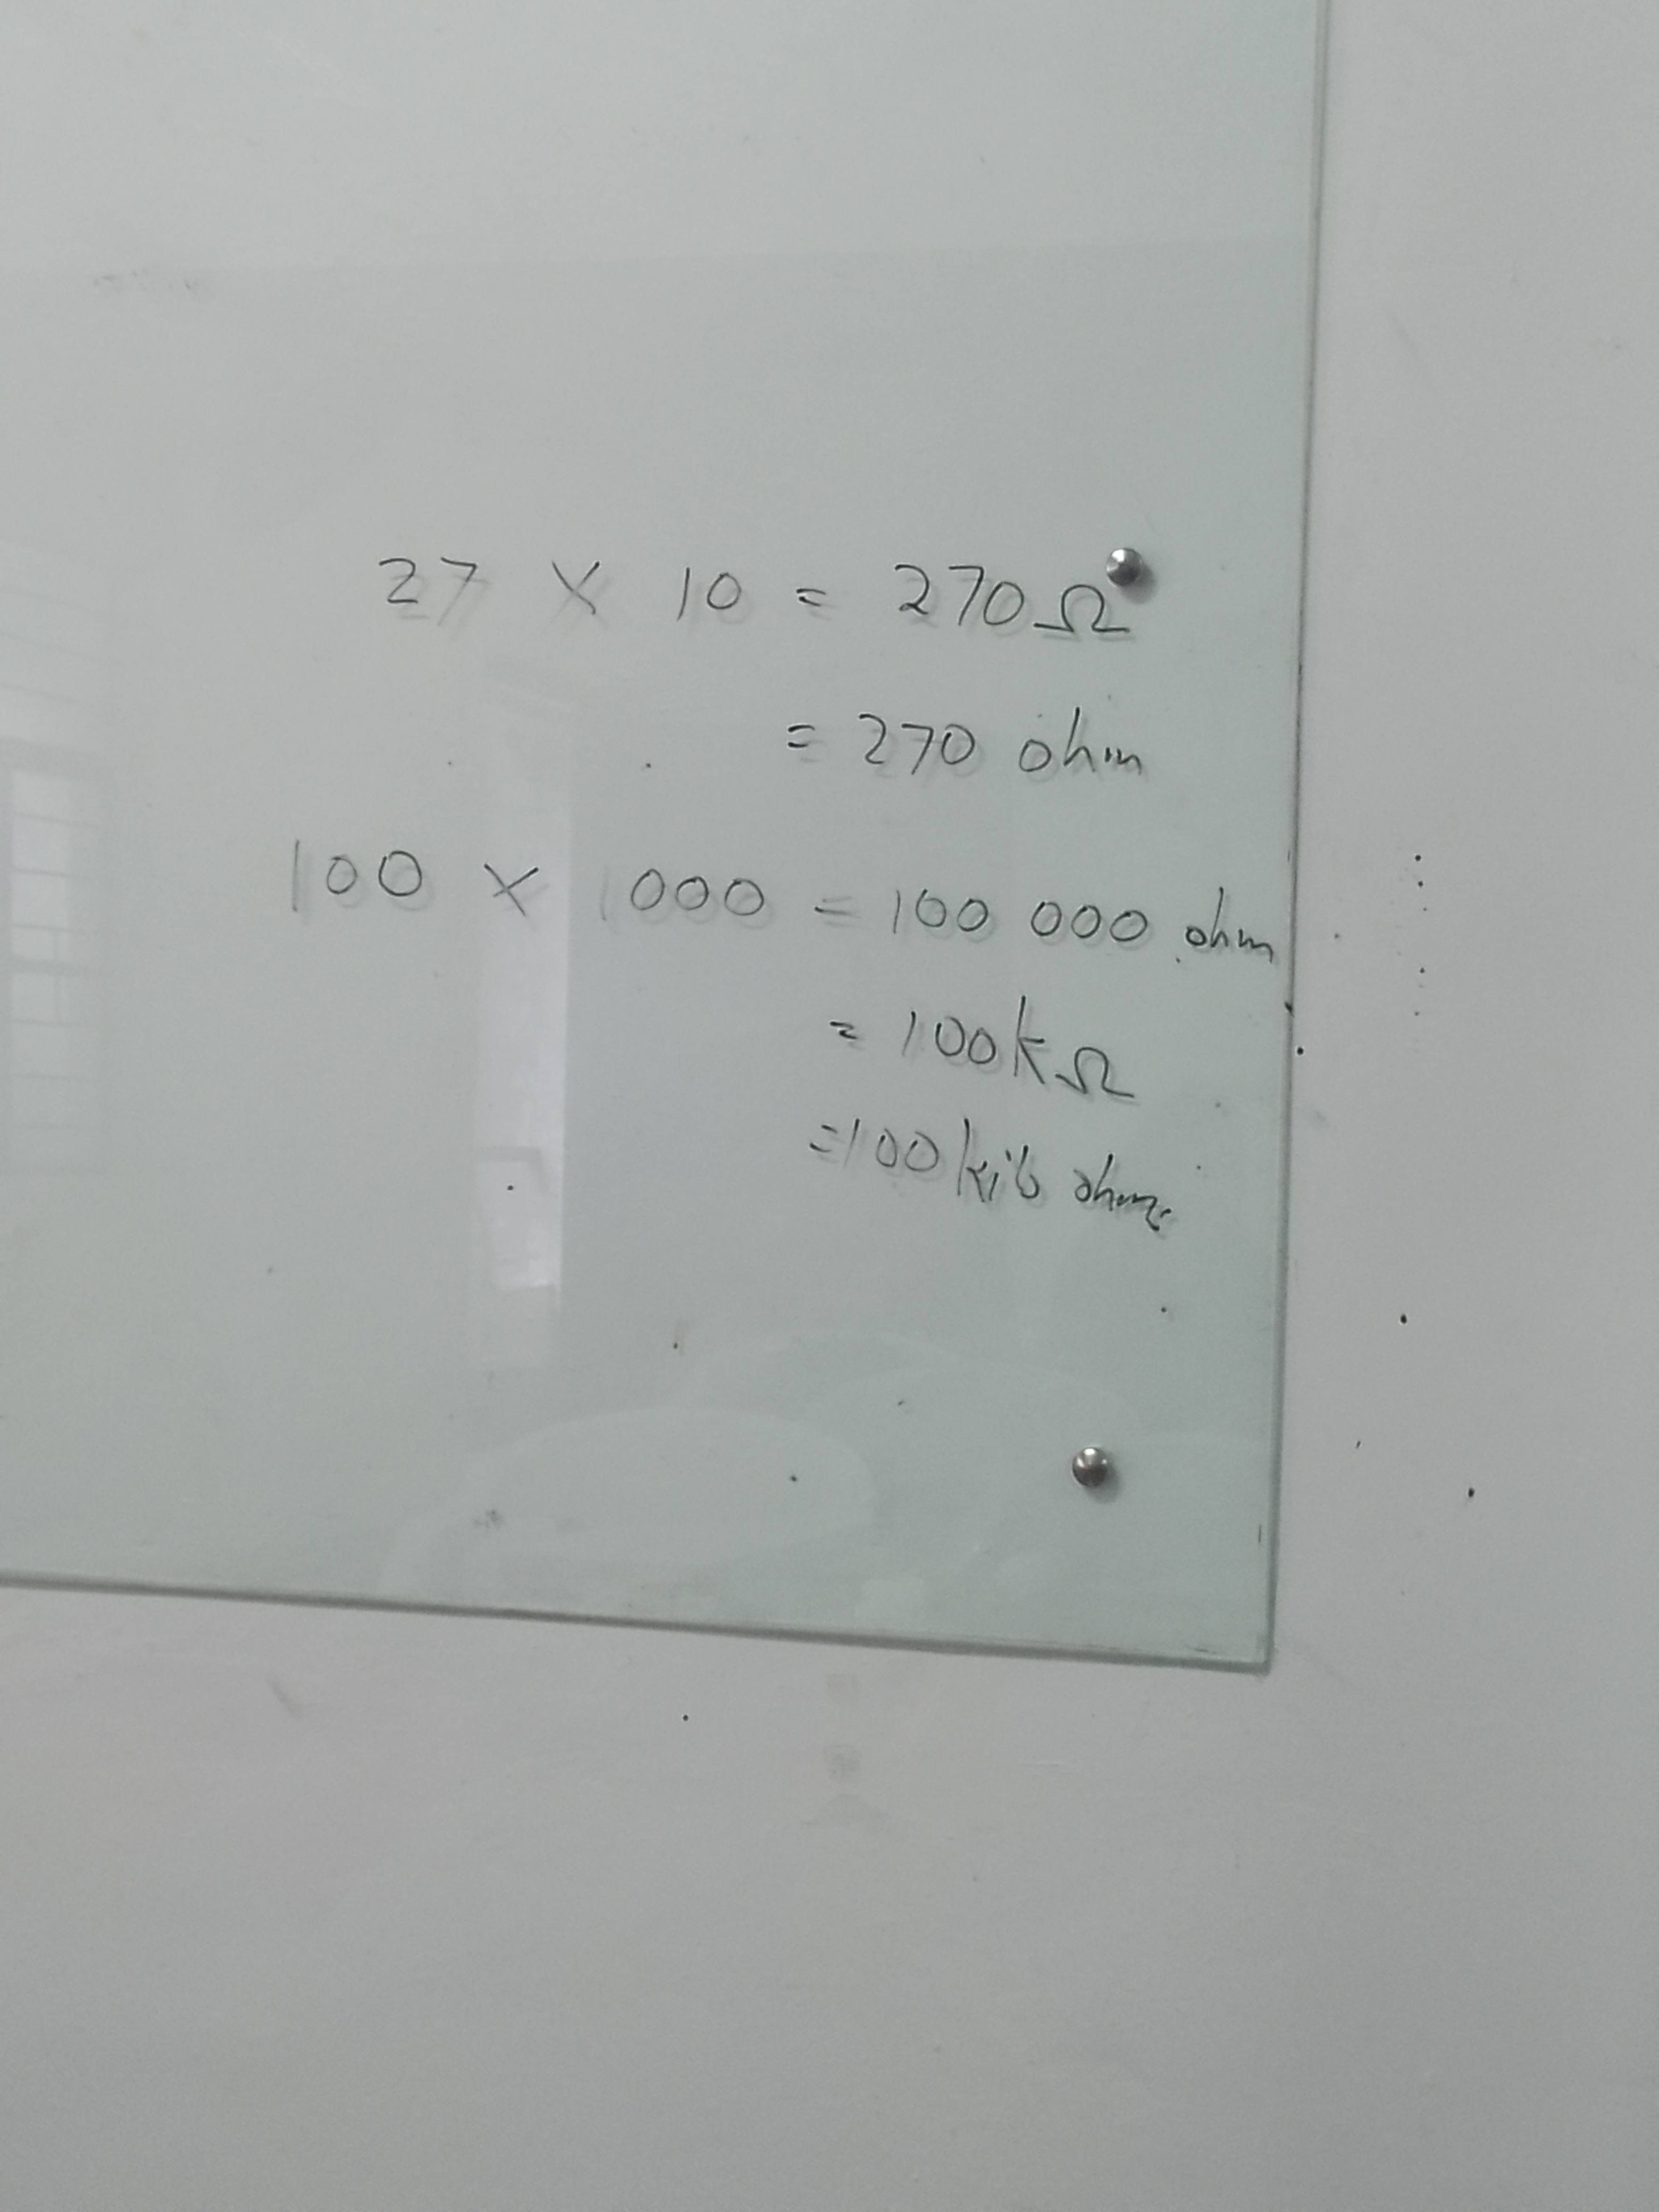 27 × 10 = 270Ω
= 270 ohm
100 × 1000 = 100 000 ohm
= 100kΩ
=100 kilo ohm